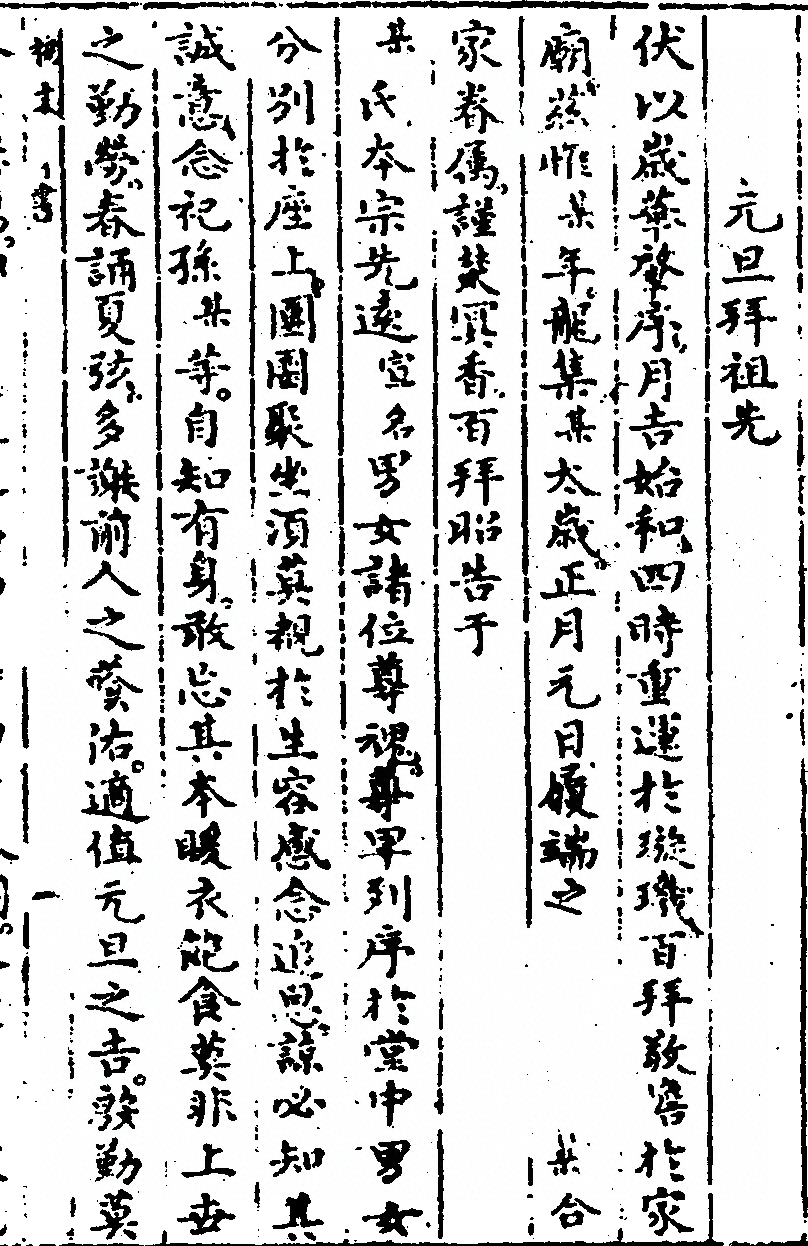 元旦拜祖先
伏以歲藥肇序月吉始和四時重運於璇璣百拜敬審於家
廟茲惟某年龍集某太歲正月元日履端之 某合
家眷属謹焚寶香百拜昭告于
某氏本宗先遠宣名男女諸位尊魂尊卑列序於堂中男女
分別於座上團圞聚坐須莫親於生容感念追思諒必知其
誠意念祀孫某等自知有身敢忘其本暖衣飽食莫非上世
之勤勞春誦夏弦多謝前人之蔭佑適值元旦之吉慇勤莫